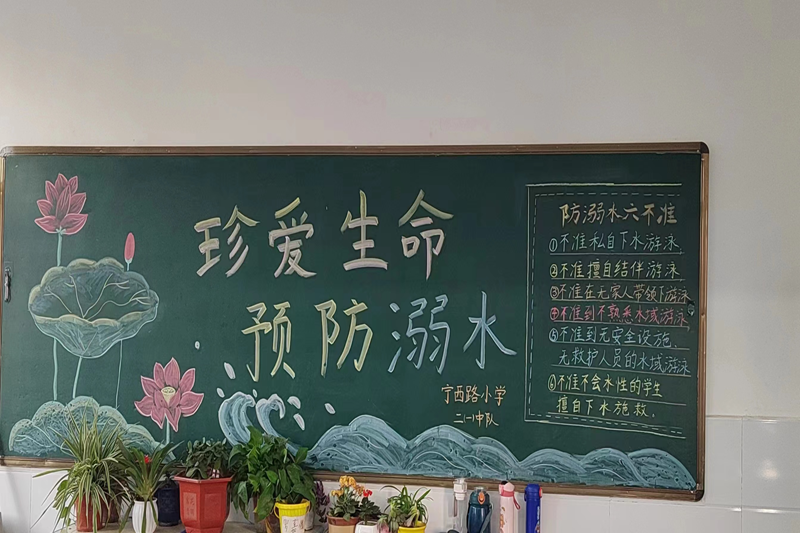 珍爱生命
预防溺水
宁西路小学
二(一)中队
防溺水六不准
①不准私自下水游泳
②不准擅自结伴游泳
③不准在无家人带领下游泳
④不准到不熟悉水域游泳
⑤不准到无安全设施、
无救护人员的水域游泳
⑥不准不会水性的学生
擅自下水施救.